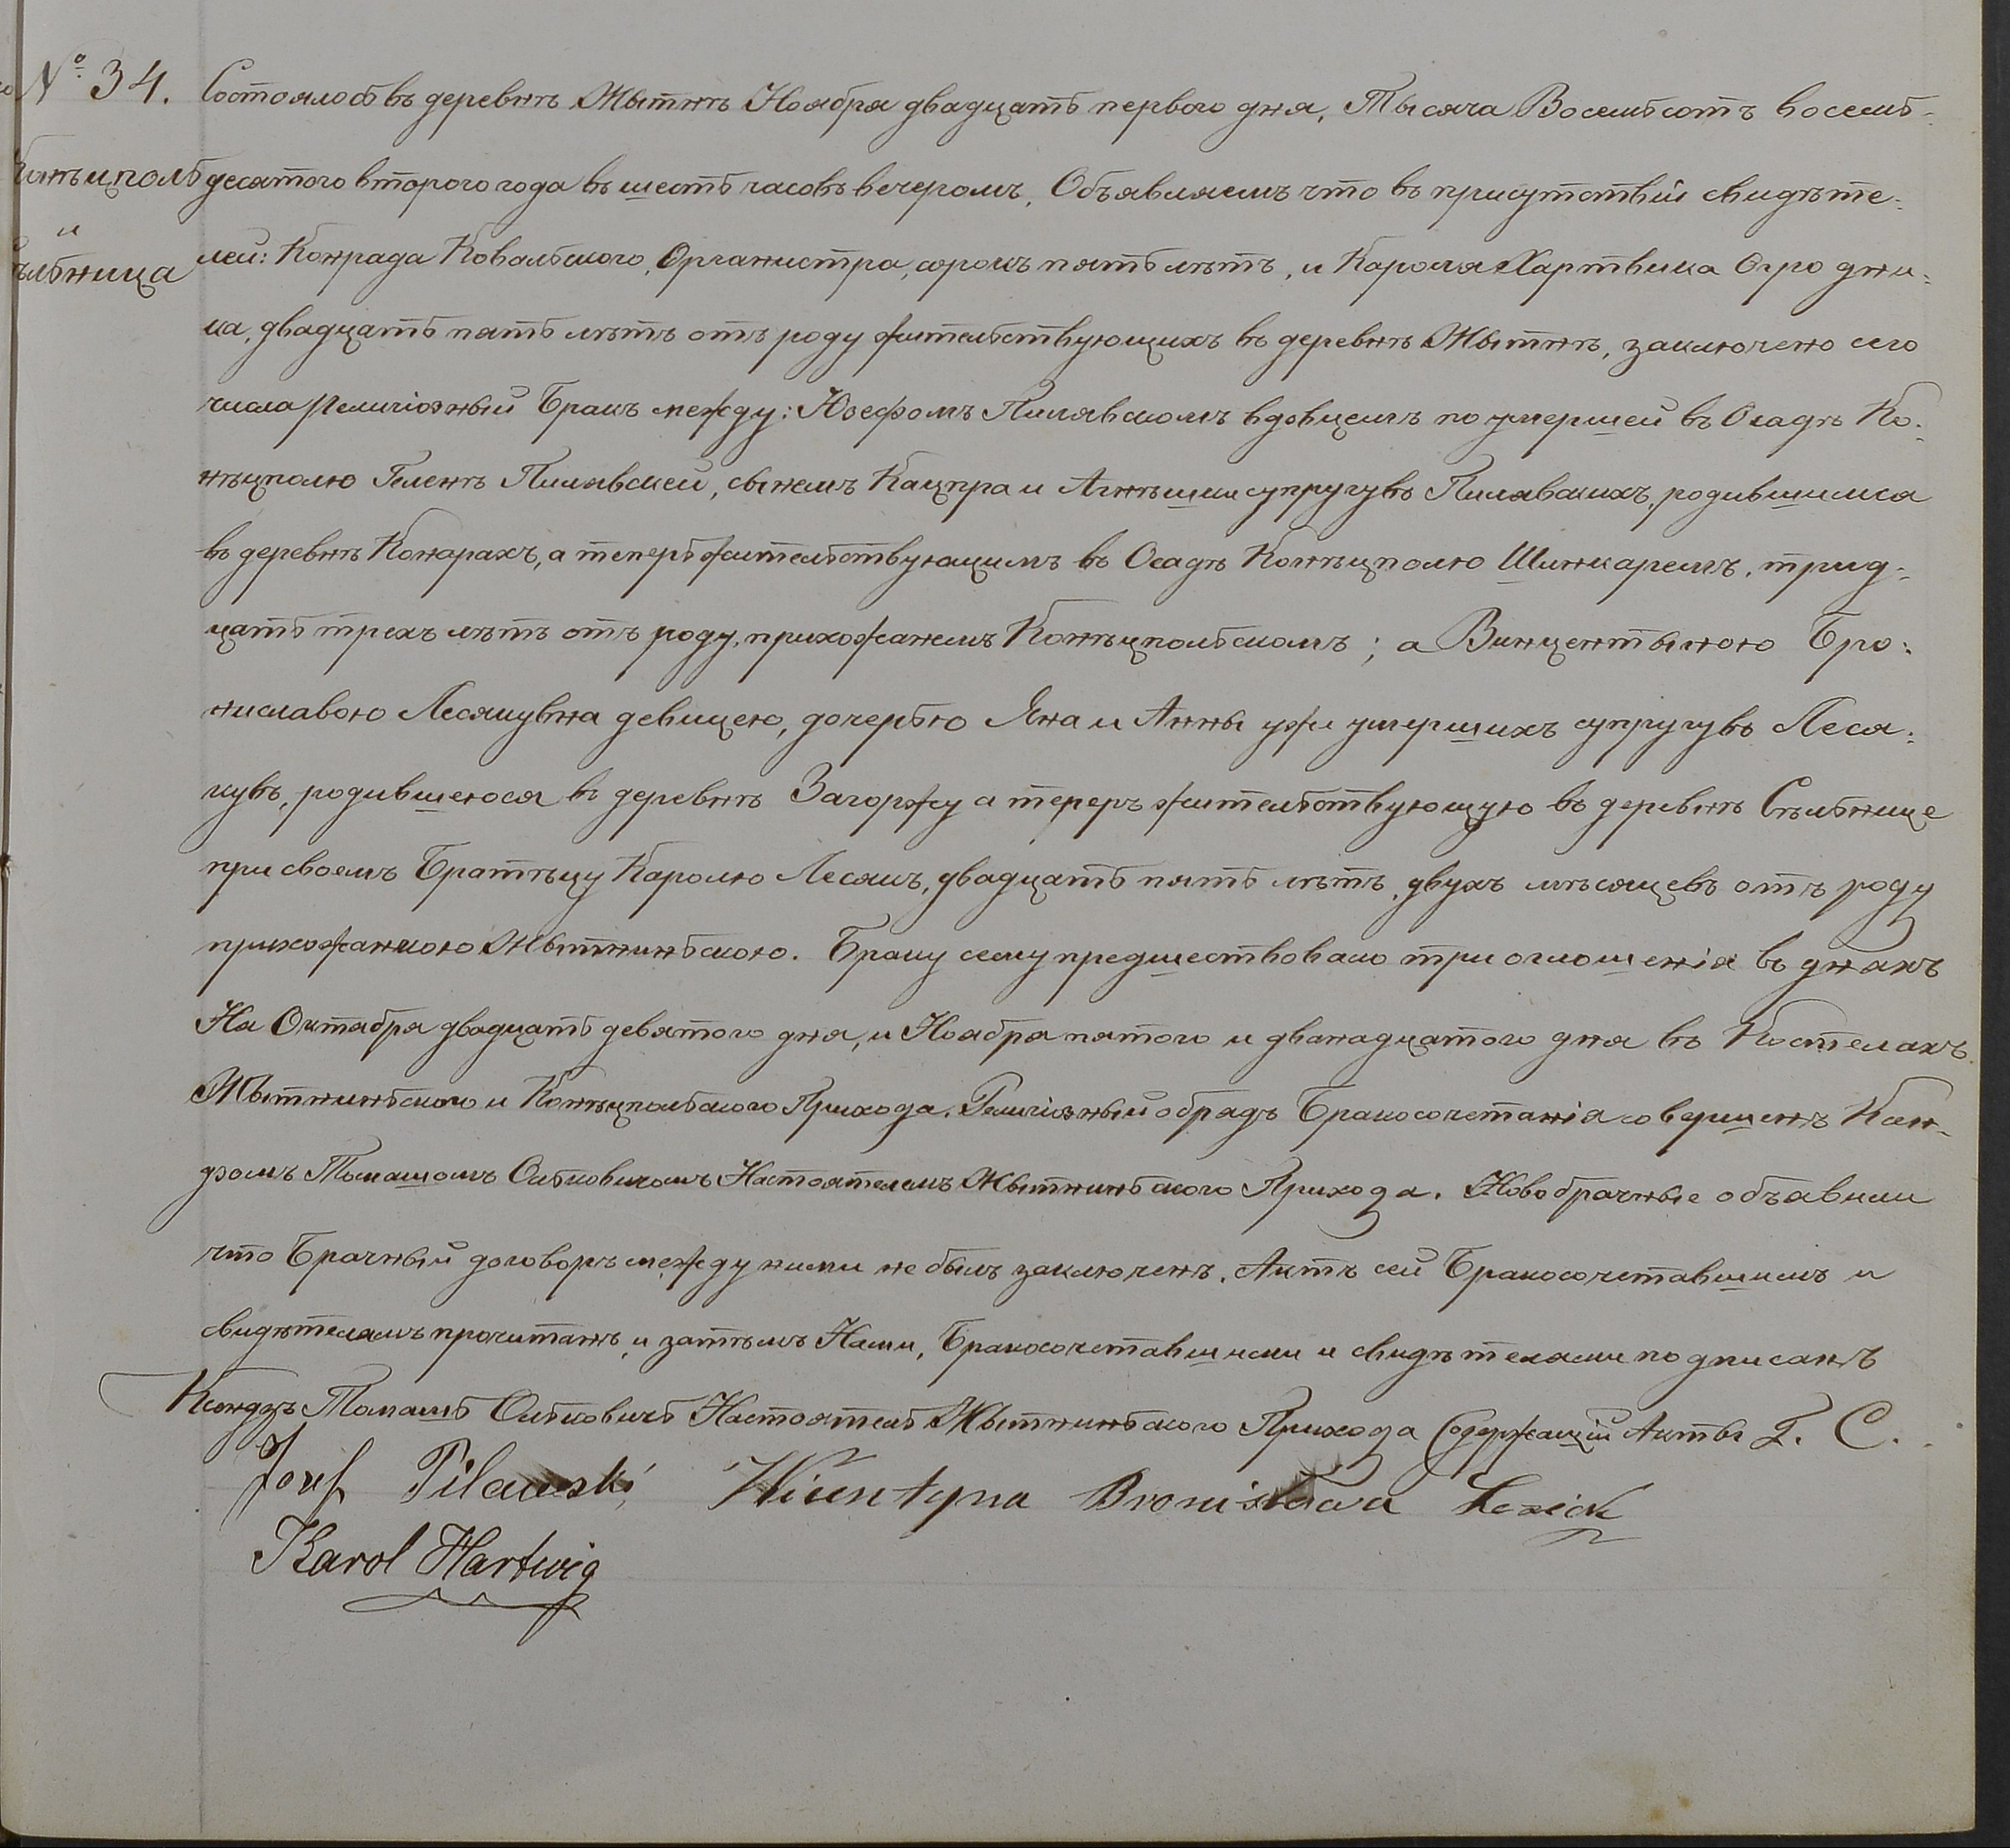 № 34. Состоялось въ деревнѣ Жытнѣ Ноября двадцать первого дня, Тысяча Восемьсотъ восемь-
Конѣцполь десятого второго года въ шесть часовъ вечеромъ. Объявляемъ что въ присутствіи свидѣте-
и
льница лей: Конрада Ковальского, Органистра, сорокъ пять лѣтъ, и Кароля Хартвика Огродни-
ка, двадцать пять лѣтъ отъ роду жительствующихъ въ деревнѣ Жытнѣ, заключено сего
числа Религіозный Бракъ между: Юзефомъ Пилявскомъ вдовцемъ по умершей въ Осадѣ Ко-
нѣцполю Геленѣ Пилявской, сынемъ Кацпра и Агнѣшки супругувъ Пилявскихъ, родившимся
въ деревнѣ Конарахъ, а теперь жительствующимъ въ Осадѣ Конѣцполю Шинкаремъ, трид-
цать трехъ лѣтъ отъ роду, прихожанемъ Конѣцпольскомъ; а Винцентыною Бро-
ниславою Лесякувна девицею, дочерью Яна и Анны уже умершихъ супругувъ Леся-
кувъ, родившеюся въ деревнѣ Загоржу а теперъ жительствующую въ деревнѣ Сѣльнице
при своемъ Братѣцу Каролю Лесякъ, двадцать пять лѣтъ, двухъ мѣсяцевъ отъ роду
прихожанкою Жытниньскою. Браку сему предшествовало три оглошенія въ днахъ
На Октабра двадцать девятого дня, и Ноабра пятого и дванадцатого дня въ Костелахъ
Жытниньского и Конѣцпольского Прихода. Религіозный обрадъ Бракосочетанія совершенъ Ксен-
дзомъ Томашомъ Ольковичомъ Настоятелемъ Жытниньского Прихода. Новобрачные объавили
что Брачный договоръ между ними не былъ заключенъ. Актъ сей Бракосочетавшимъ и
свидѣтеламъ прочитанъ, и затѣмъ Нами, Бракосочетавшимы и свидѣтелами подписанъ
Ксендзъ Томашь Ольковичь Настоятель Жытниньского Прихода Содержащій Акты Г. С.
Józef Pilawski Wicentyna Bronisława Lesiak
Karol Hartwig